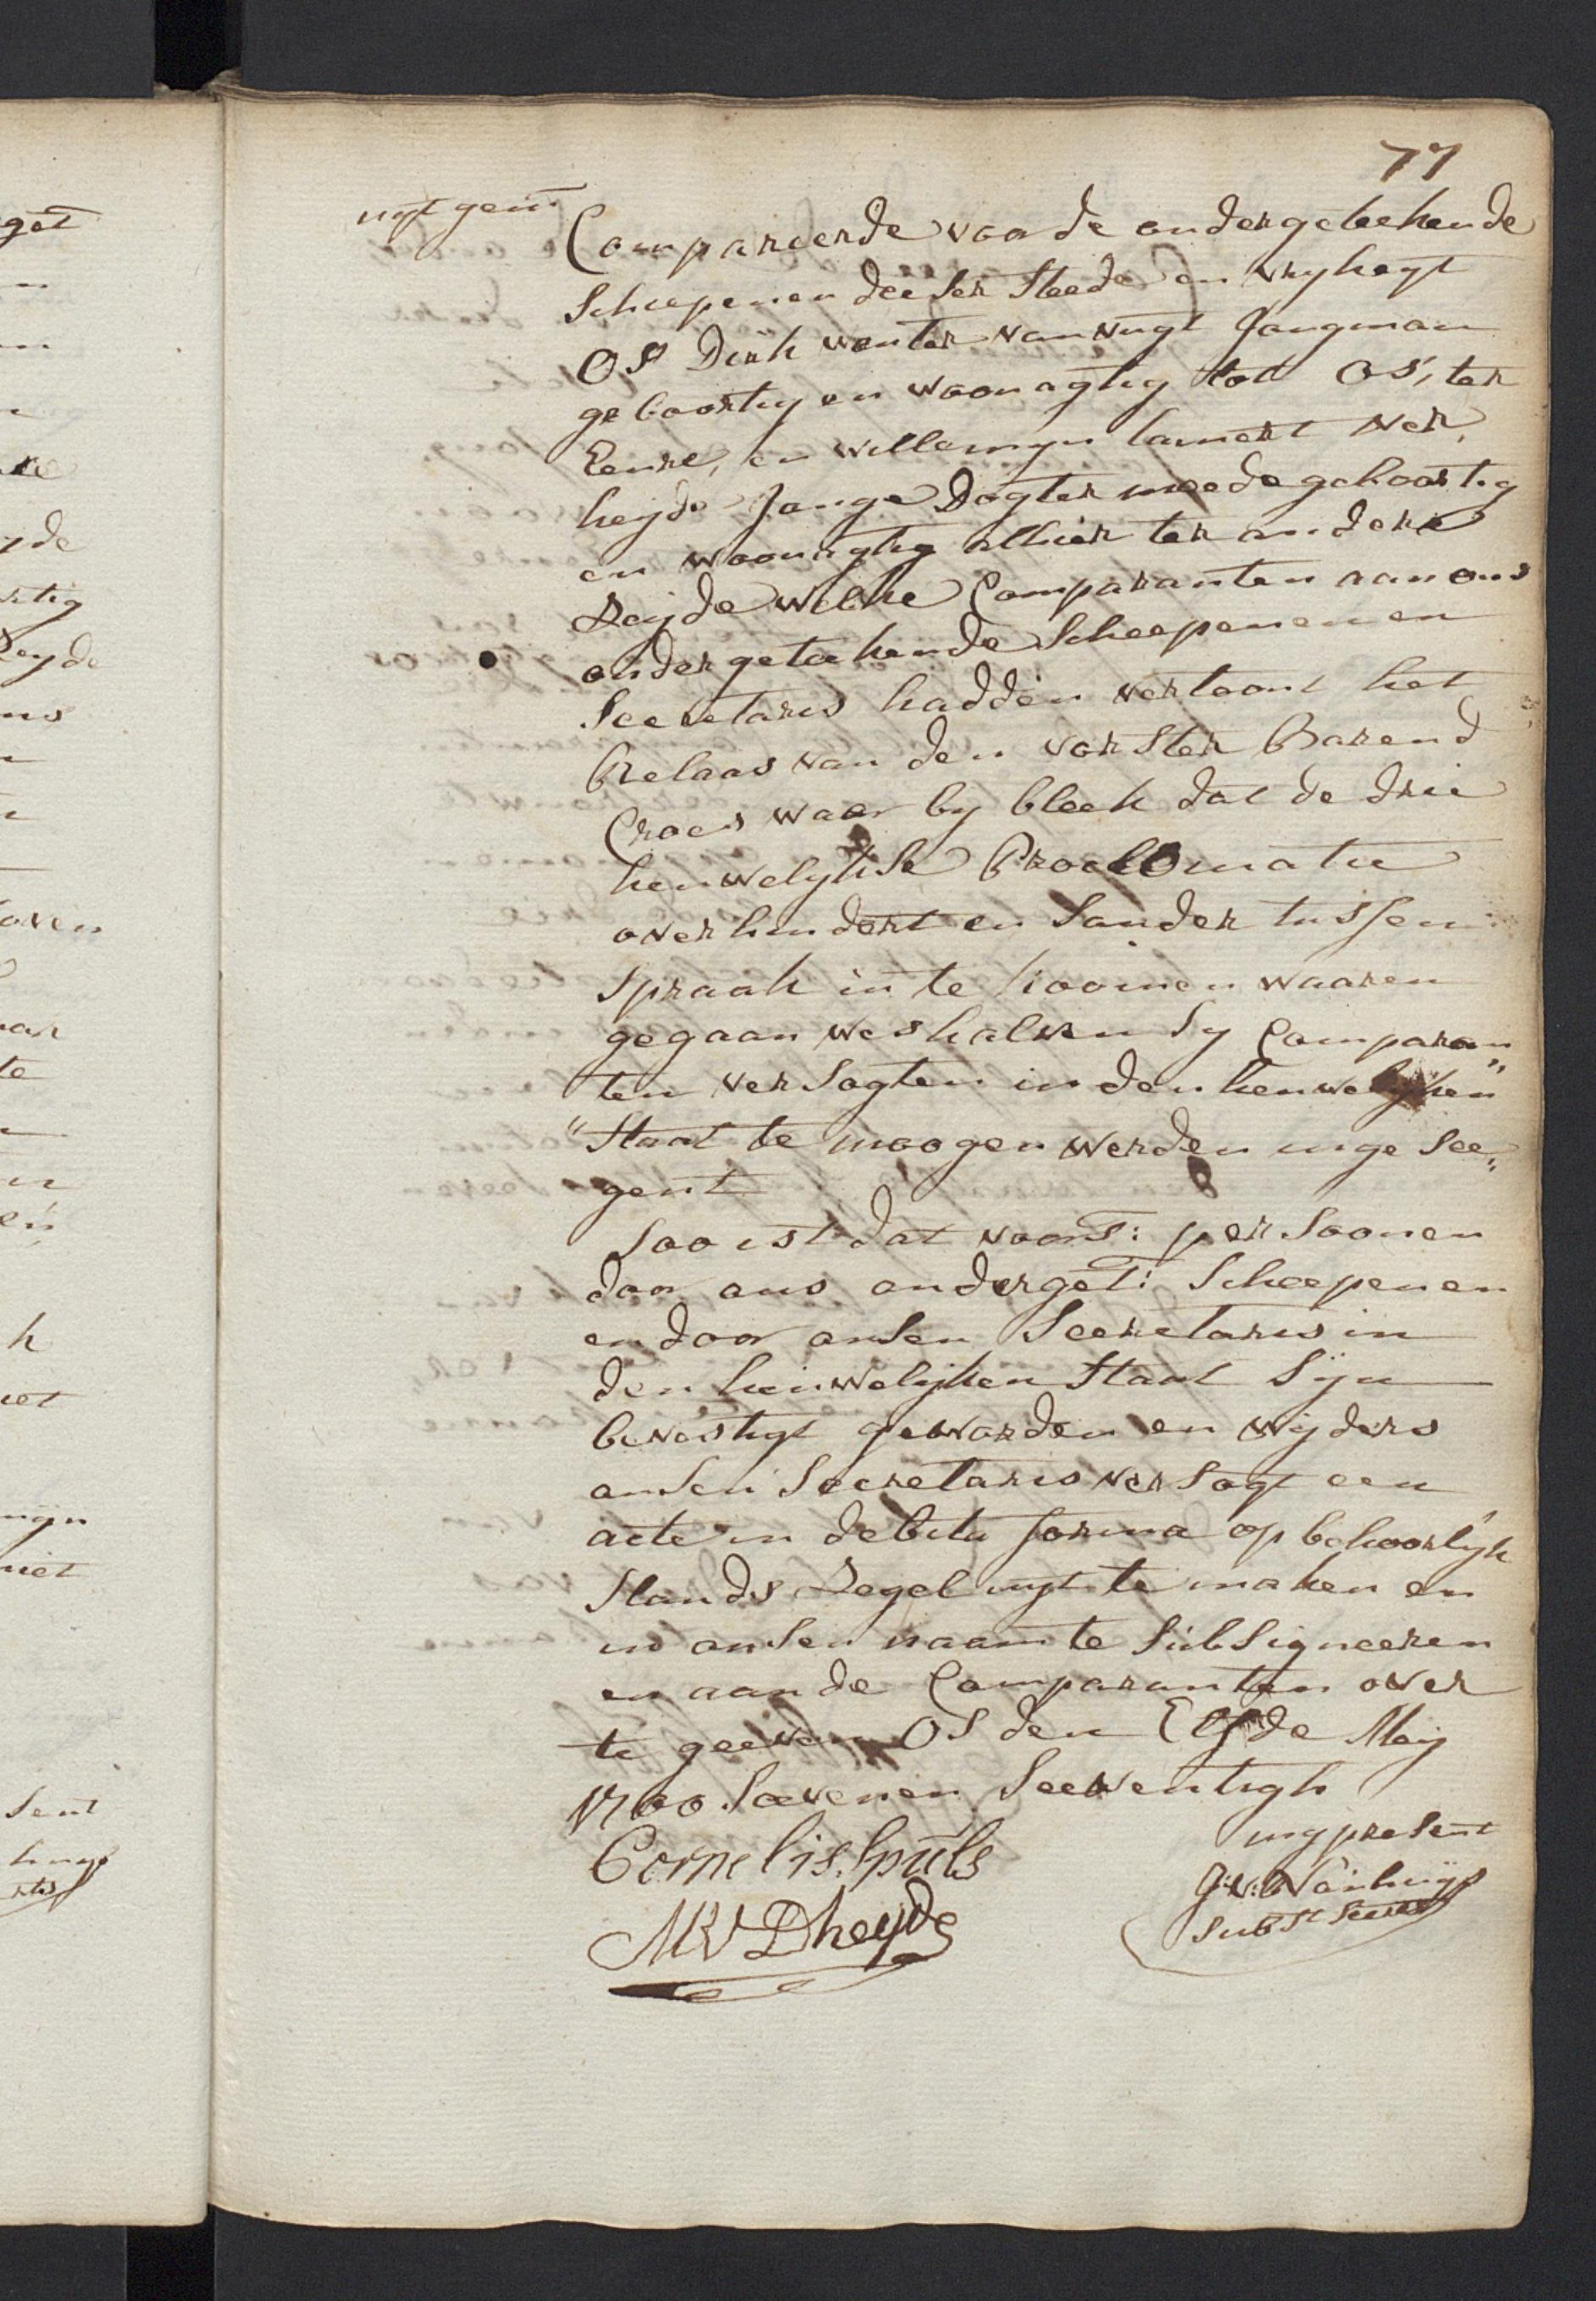 77
uijt gem
Compareerde voor de ondergeteekende
Scheepenen deeser Steede en vryheyt
OS Dirk wouter van vugt Jongman
geboortig en woonagtig tot OS, ter
Eenre, en willemyn lamert ver,
heyde Jonge Dogter meede geboortig
en woonagtig alhier ter andere
Zeyde welke Comparanten aan ons
ondergeteekende Scheepenen en
Secretaris hadden vertoont het
Relaas van den vorster Barend
Croes waar by bleek dat de drie
houwelykse Proclomatie
overhindert en sonder tussen
spraak in te koomen waaren
gegaan weshalven sy Comparan„
ten versogten in den houwelyken
„Staat te moogen werden inge see„
gent
Soo ist dat voors: persoonen
door ons onderget: Scheepenen
en door onsen Secretaris in
den houwelyken Staat syn
bevestigt geworden en wyders
onsen Secretaris versogt een
acte in debita forma op behoorlyk
slands Zegel uyt te maken en
in onsen naam te Subsigneeren
en aan de Comparanten over
te geeven OS den Elfde Mey
1700 Seeven en Seeventigh
Cornelis Spuls
my present
MVDheyde
Subst Secrets
get
yde
Zeyde
ns
te
h
niet
sent